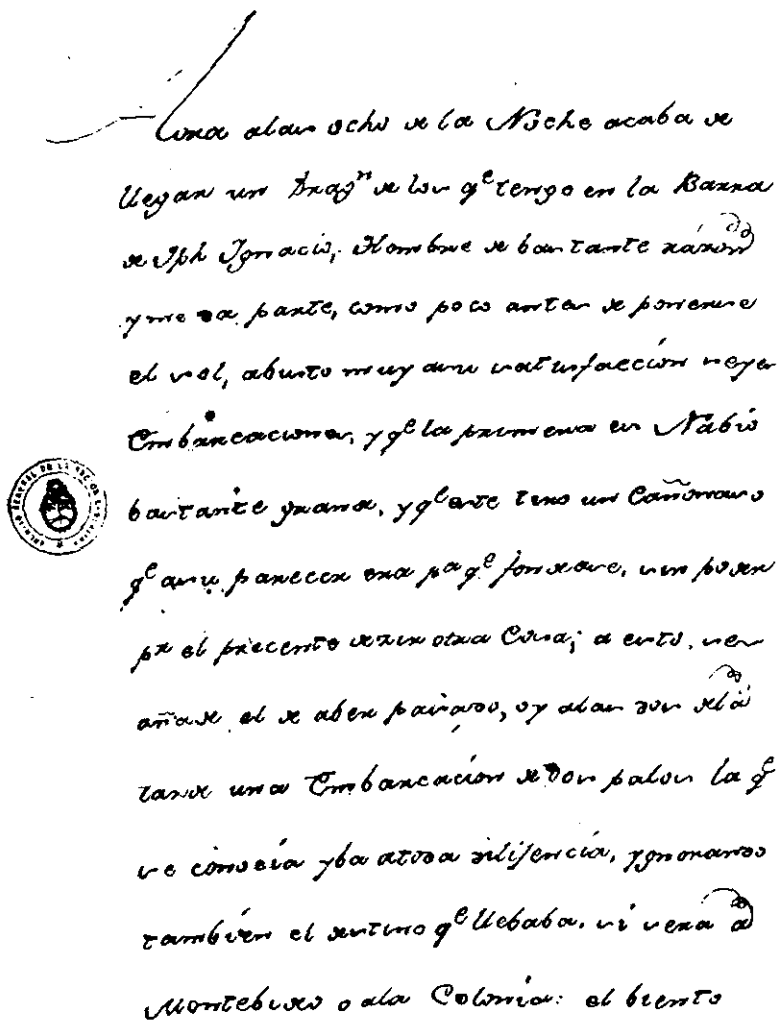 Aora alas ocho de la Noche acaba de
llegar un Drag.n de los q.e tengo en la Barra
de Jph Ygnacio, Hombre de bastante razon
y me da parte, como poco antes de ponerse
el sol, abisto muy asu satisfaccion seys
Embarcaciones, y q.e la primera es Nabio
bastante grande, y q.e este tiro un Cañonaso
q.e asu parecer era pa q.e fondease, sin poder
pr el precente dezir otra Cosa; a esto, se
añade el de aber pasado, oy alas dos dela
tarde una Embarcacion de dos palos la q.e
se conocia yba atoda dilijencia, ygnorando
tambien el destino q.e llebaba, si sera a
Montebideo o ala Colonia: el biento